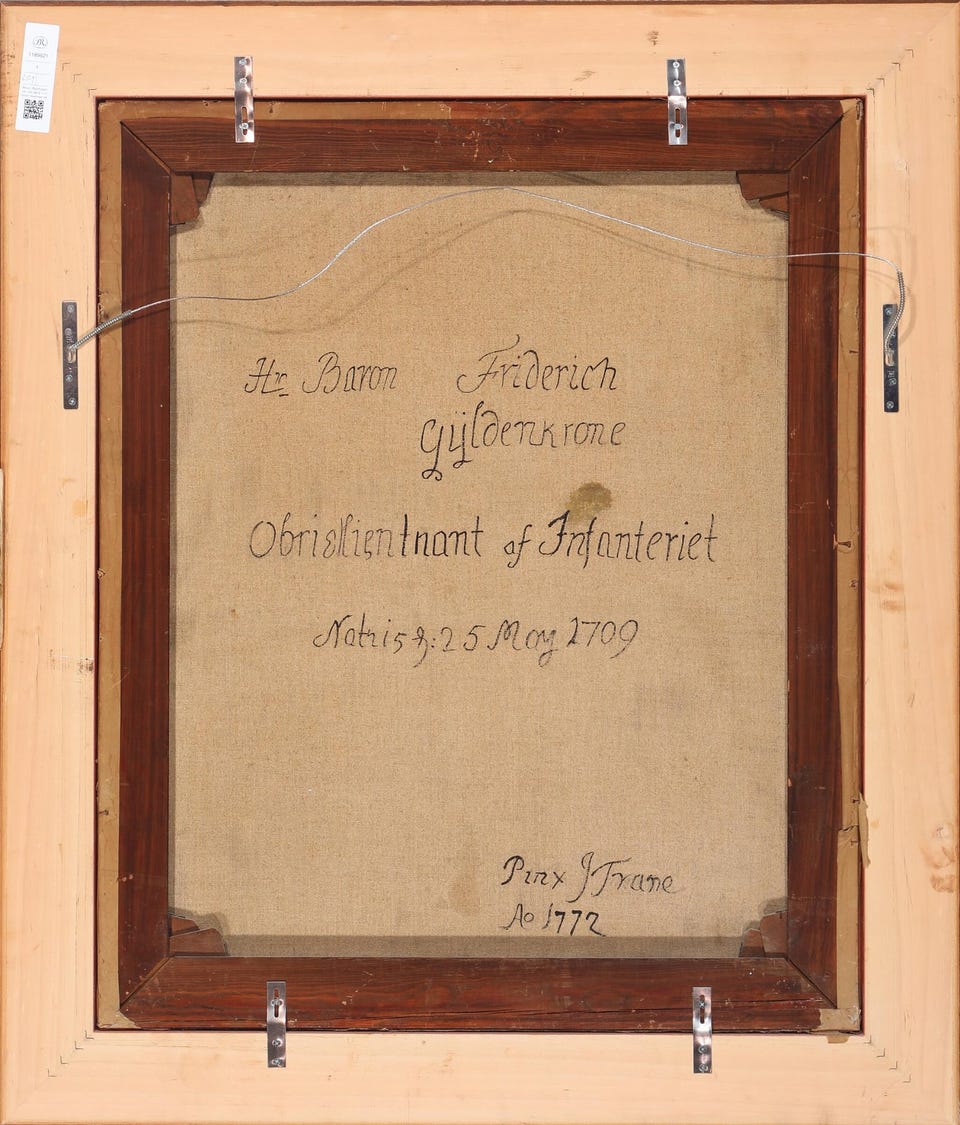 1189821
1
Hr. Baron Friderich
Gÿldenkrone
Obristlientnant af Infanteriet
Natris d: 25 May 1709
Pinx J Trane
Ao 1772